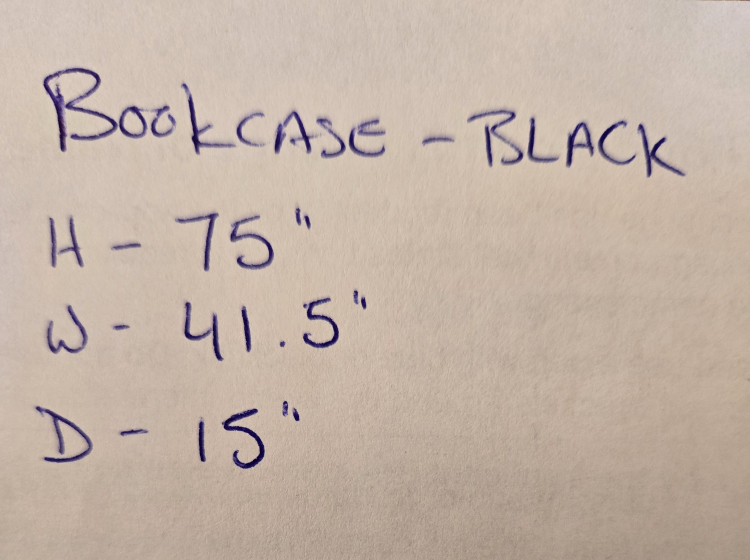 BookCASE - BLACK
H - 75"
W - 41.5"
D - 15"